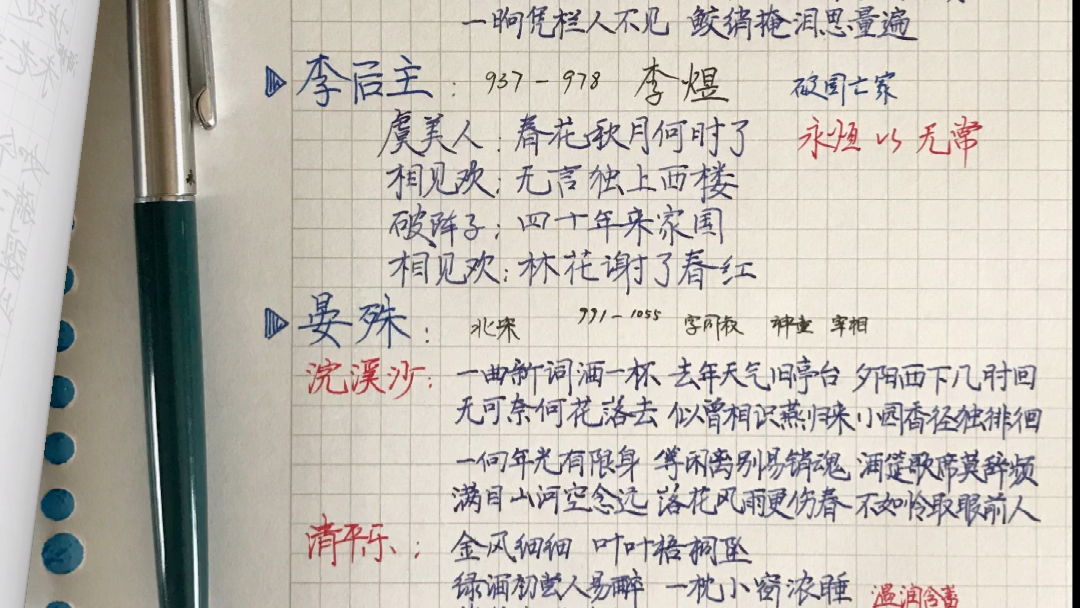 一晌凭栏人不见 鲛绡掩泪思量遍
李后主：937-978 李煜 破国亡家
虞美人：春花秋月何时了 永恒 以 无常
相见欢：无言独上西楼
破阵子：四十年来家国
相见欢：林花谢了春红
晏殊：北宋 991-1055 字同叔 神童 宰相
浣溪沙：一曲新词酒一杯 去年天气旧亭台 夕阳西下几时回
无可奈何花落去 似曾相识燕归来 小园香径独徘徊
一向年光有限身 等闲离别易销魂 酒筵歌席莫辞频
满目山河空念远 落花风雨更伤春 不如怜取眼前人
清平乐：金风细细 叶叶梧桐坠
绿酒初尝人易醉 一枕小窗浓睡 温润含蓄